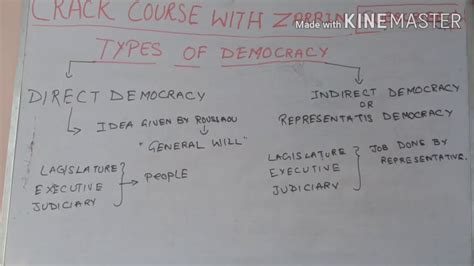 CRACK COURSE WITH ZARRIN
Made with KINEMASTER
TYPES OF DEMOCRACY
DIRECT DEMOCRACY
IDEA GIVEN BY ROUSSAOU
"GENERAL WILL"
LAGISLATURE
EXECUTIVE
JUDICIARY
PEOPLE
INDIRECT DEMOCRACY
OR
REPRESENTATIS DEMOCRACY
LAGISLATURE
EXECUTIVE
JUDICIARY
JOB DONE BY
REPRESENTATIVE.